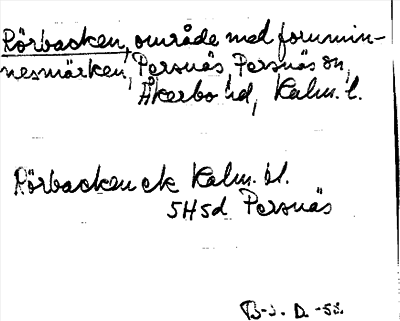 Rörbacken, område med fornmin-
nesmärken, Persnäs Persnäs sn,
Åkerbo hd, Kalm. l.
Rörbacken ek Kalm. bl.
5H5d Persnäs
B-s. D. -58.